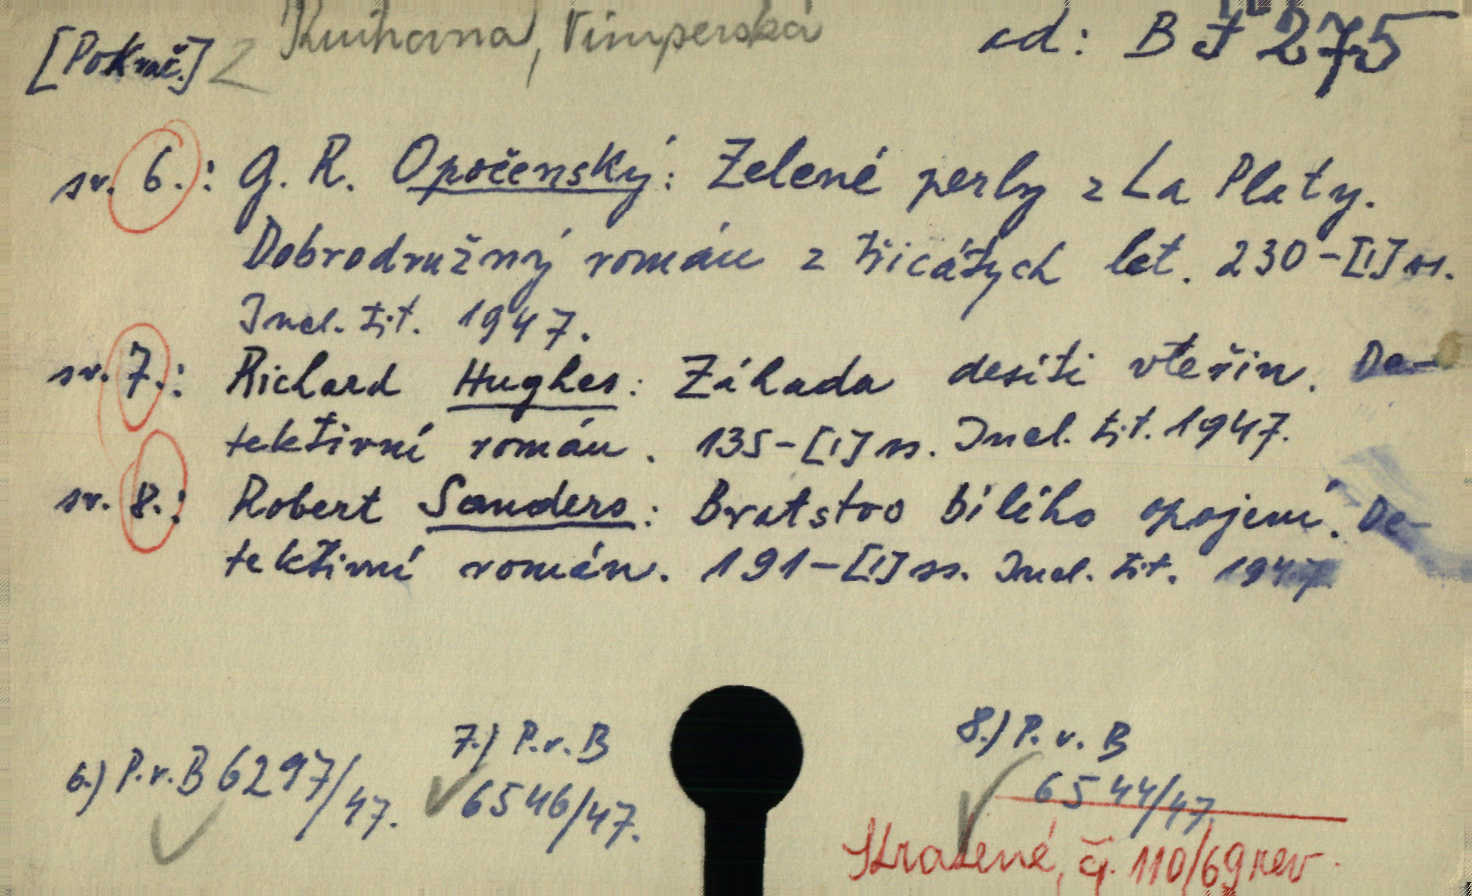 [Pokrač.] 2 Knihovna, Vimperská ad: B J 275
sv. 6.: G. R. Opočenský: Zelené perly z La Platy.
Dobrodružný román z třicátých let. 230-[I] ss.
Incl. tit. 1947.
sv. 7.: Richard Hughes: Záhada desíti vteřin. De-
tektivní román. 135-[I] ss. Incl. tit. 1947.
sv. 8.: Robert Sanders: Bratstvo bílého opojení. De-
tektivní román. 191-[I] ss. Incl. tit. 1947.
6.) P.v.B 6297/47.
7.) P.v.B
6546/47.
8.) P.v.B
6544/47.
Ztracené, čj. 110/69 rev.